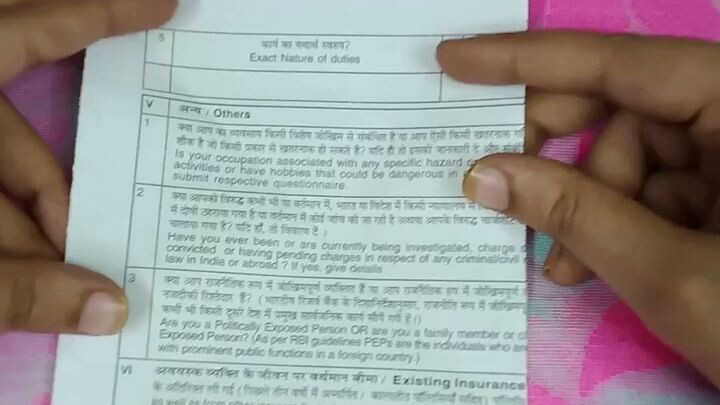 8
कार्य का यथार्थ स्वरूप?
Exact Nature of duties
V अन्य / Others
1 क्या आप का व्यवसाय किसी विशेष जोखिम से संबंधित है या आप ऐसी किसी खतरनाक
शौक है जो किसी प्रकार से खतरनाक हो सकते है? यदि हाँ तो इसकी जानकारी दे और
Is your occupation associated with any specific hazard
activities or have hobbies that could be dangerous in
submit respective questionnaire.
2 क्या आपके विरुद्ध कभी भी या वर्तमान में, भारत या विदेश में किसी न्यायालय में
में दोषी ठहराया गया है या वर्तमान में कोई जांच की जा रही है अथवा आपके विरुद्ध
चलाया गया है? यदि हाँ, तो विवरण दें ।
Have you ever been or are currently being investigated, charge
convicted or having pending charges in respect of any criminal/civil
law in India or abroad ? If yes, give details
3 क्या आप राजनीतिक रूप में जोखिमपूर्ण व्यक्ति हैं या आप राजनैतिक रूप में जोखिमपूर्ण
नजदीकी रिश्तेदार हैं? ( भारतीय रिजर्व बैंक के दिशानिर्देशानुसार, राजनीति रूप में
कभी भी किसी दूसरे देश में प्रमुख सार्वजनिक कार्य सौंपे गये है।)
Are you a Politically Exposed Person OR are you a family member or
Exposed Person? (As per RBI guidelines PEPs are the individuals who are
with prominent public functions in a foreign country.)
VI अवयस्क व्यक्ति के जीवन पर वर्थमान बीमा / Existing Insurance
के अतिरिक्त ली गई ( पिछले तीन वर्षों में अभ्यर्पित / कालातीत पॉलिसियाँ सहित)